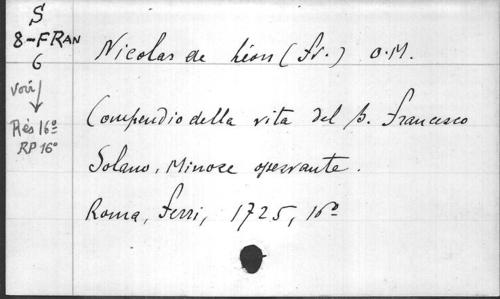 S
8-FRAN
6
voir
Rés 16º
RP 16º
Nicolas de Léon (Fr.) O.M.
Compendio della vita del B. Francesco
Solano, Minore osservante.
Roma, Ferri, 1725, 16º